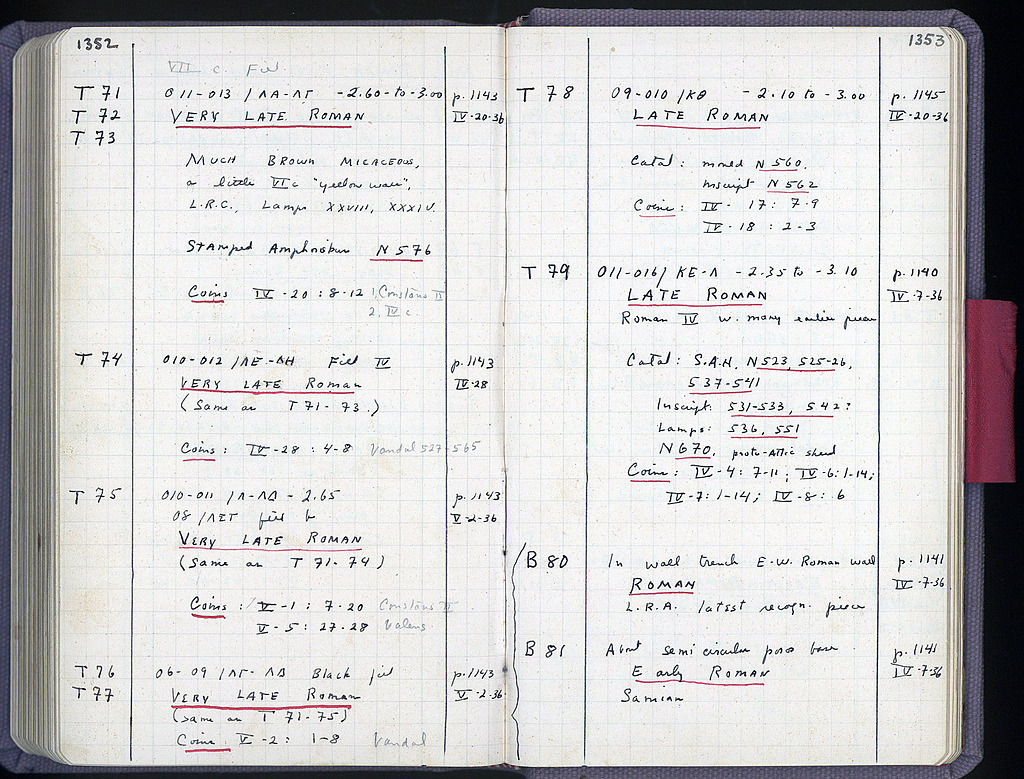 1352
VII c. Fill
T 71 O 11-013 / ΛΑ-ΛΓ -2.60-to-3.00 p. 1143
T 72 VERY LATE ROMAN IV-20-36
T 73
MUCH BROWN MICACEOUS,
a little VI c "yellow ware",
L.R.C., Lamps XXVIII, XXXIV.
Stamped Amphora N 576
Coins IV-20 : 8-12 1, Constans II
2, IV c.
T 74 010-012 / ΛΕ- Fill IV p. 1143
VERY LATE Roman IV-28
(Same as T 71-73.)
Coins : IV-28 : 4-8 Vandal 527-565
T 75 010-011 / Λ-ΛΔ - 2.65 p. 1143
08 / fill b V-2-36
VERY LATE ROMAN
(Same as T 71-74)
Coins : V-1 : 7-20 Constans II
V-5 : 27-28 Valens
T 76 06-09 / ΛΓ-ΛΔ Black fill p. 1143
T 77 VERY LATE Roman V-2-36
(same as T 71-75)
Coins V-2 : 1-8 Vandal
1353
T 78 09-010 / ΚΘ - 2.10 to - 3.00 p. 1145
LATE ROMAN IV-20-36
Catal : mould N 560.
Inscript N 562
Coins : IV- 17 : 7-9
IV-18 : 2-3
T 79 011-016 / ΚΕ-Λ - 2.35 to - 3.10 p. 1140
LATE ROMAN IV-7-36
Roman IV w. many earlier pieces
Catal : S.A.H. N 523, 525-26,
537-541
Inscript. 531-533, 542?
Lamps : 536, 551
N 670. proto-Attic sherd
Coins : IV-4 : 7-11 ; IV-6 : 1-14;
IV-7 : 1-14 ; IV-8 : 6
B 80 In wall trench E-W. Roman wall p. 1141
ROMAN IV-7-36
L.R.A. latest recogn. piece
B 81 About semi circular poros base. p. 1141
Early ROMAN IV-7-36
Samian